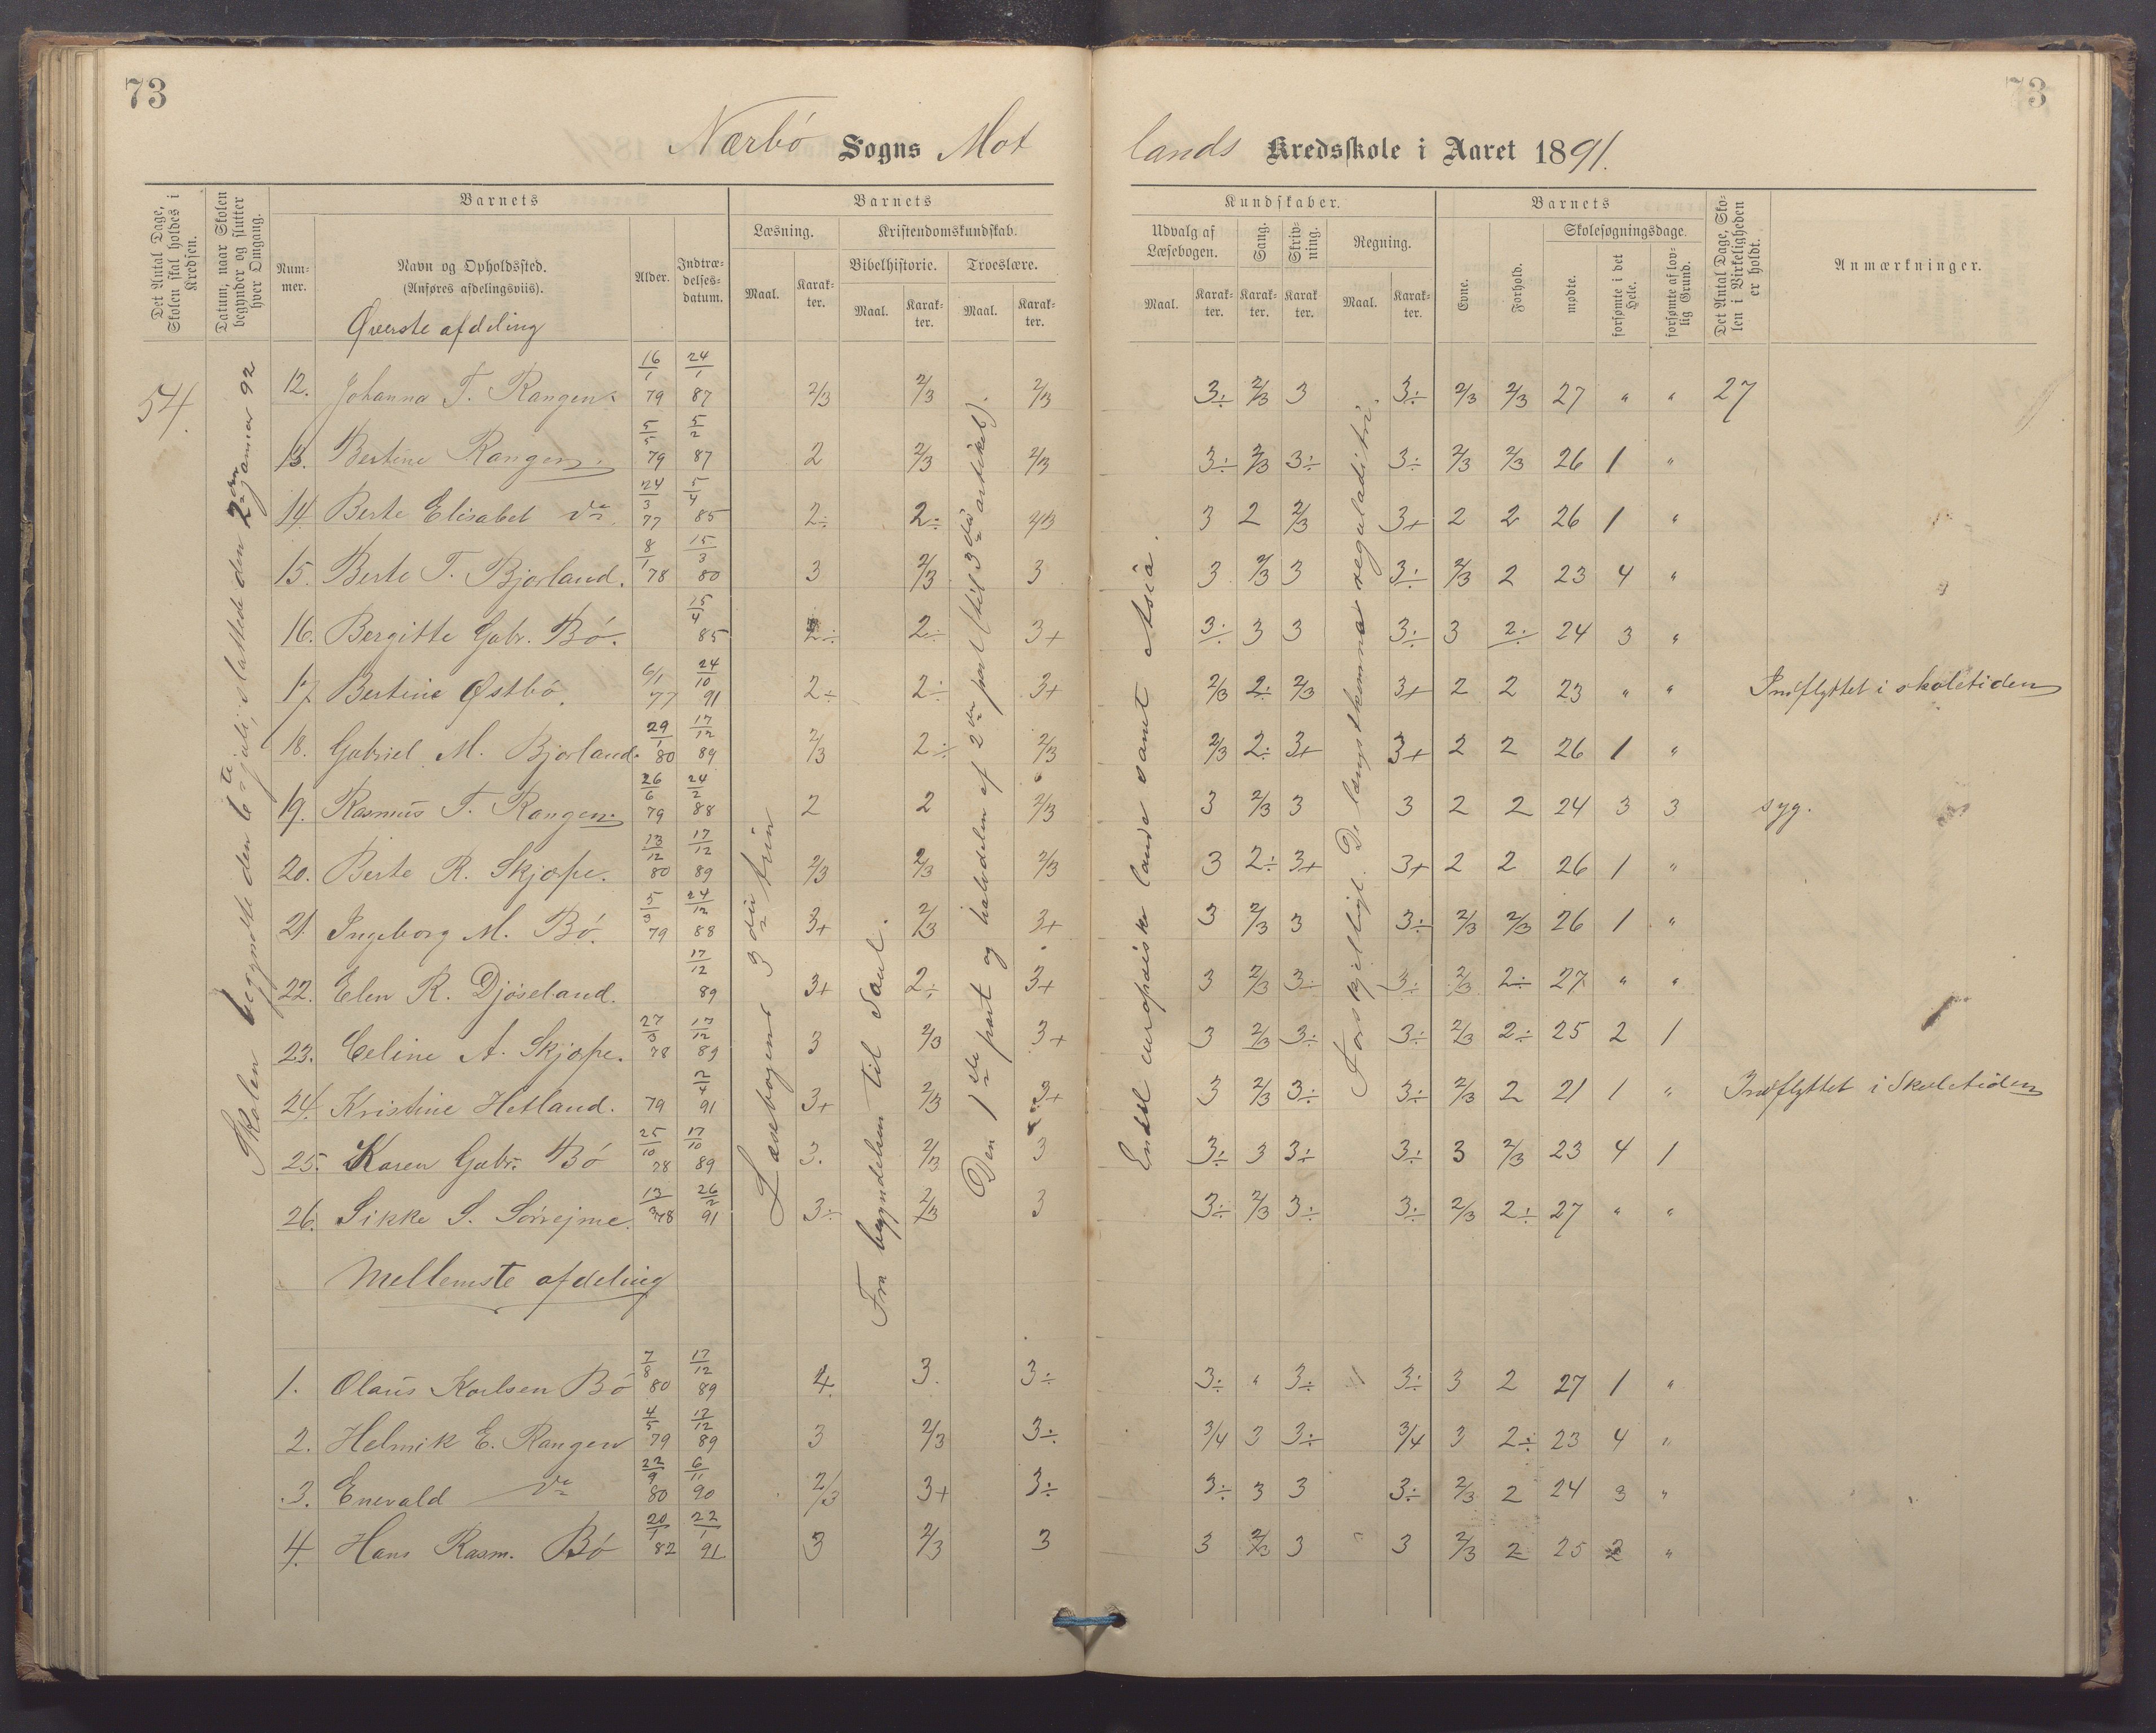 73
73
Nærbö Sogns Mot
lands Kredsskole i Aaret 1891.
Det Antal Dage, Skolen skal holdes i Kredsen.
Datum, naar Skolen begynder og slutter hver Omgang.
Barnets
Barnets
Kundskaber.
Barnets
Det Antal Dage, Skolen i Virkeligheden er holdt.
Anmærkninger.
Nummer.
Navn og Opholdssted. (Anføres afdelingsviis).
Alder.
Indtrædelsesdatum.
Læsning.
Kristendomskundskab.
Bibelhistorie.
Troeslære.
Udvalg af Læsebogen.
Sang.
Skrivning.
Regning.
Evne.
Forhold.
Skolesøgningsdage.
mødte.
forsømte i det Hele.
forsømte af lovlig Grund.
Maal. Karakter. Maal. Karakter. Maal. Karakter. Maal. Karakter. Karakter. Karakter Maal. Karakter.
Øverste afdeling
54.
Skolen begyndte den 6te juli, sluttede den 2den januar 92
Læsebogens 3die trin
Fra begyndelsen til Saul.
Den 1ste part og halvdelen af 2den part (til 3die artikel).
Endel europæiske lande samt Asia.
Forskjelligt. De længstkomne reguladitri.
12. Johanna T. Rangen. 16/1 79 24/1 87 2/3 2/3 2/3 3÷ 2/3 3 3÷ 2/3 2/3 27 " " 27
13. Bertine Rangen. 5/5 79 5/2 87 2 2/3 2/3 3÷ 2/3 3÷ 3÷ 2/3 2/3 26 1 "
14. Berte Elisabet do. 24/3 77 5/4 85 2÷ 2÷ 2/3 3 2 2/3 3+ 2 2 26 1 "
15. Berte T. Bjorland. 8/1 78 15/3 80 3 2/3 3 3 2/3 3 3÷ 2/3 2 23 4 "
16. Bergitte Gabr. Bö. 15/4 85 2÷ 2÷ 3+ 3÷ 3 3 3÷ 3 2÷ 24 3 "
17. Bertine Østbö. 6/1 77 24/10 91 2÷ 2÷ 3+ 2/3 2÷ 2/3 3+ 2 2 23 " " Indflyttet i skoletiden
18. Gabriel M. Bjorland. 29/1 80 17/12 89 2/3 2÷ 2/3 2/3 2÷ 3+ 3+ 2 2 26 1 "
19. Rasmus T. Rangen. 26/6 79 24/2 88 2 2 2/3 3 2/3 3 3 2 2 24 3 3 syg.
20. Berte R. Skjæpe. 13/12 80 17/12 89 2/3 2/3 2/3 3 2÷ 3+ 3+ 2 2 26 1 "
21. Ingeborg M. Bö. 5/3 79 24/12 88 3+ 2/3 3+ 3 2/3 3 3÷ 2/3 2/3 26 1 "
22. Elen R. Djöseland. 17/12 89 3+ 2÷ 3+ 3 2/3 3÷ 3÷ 2/3 2÷ 27 " "
23. Celine A. Skjæpe. 27/3 78 17/12 89 3 2/3 3+ 3 2/3 3÷ 3÷ 2/3 2÷ 25 2 1
24. Kristine Hetland. 79 91 3+ 2/3 3+ 3 2/3 3÷ 3÷ 2/3 2 21 1 " Indflyttet i Skoletiden
25. Karen Gabr. Bö 25/10 78 17/10 89 3. 2/3 3 3÷ 3 3÷ 3÷ 3 2/3 23 4 1
26. Sikke S. Sörrejme. 78 26/2 91 3÷ 2/3 3 3÷ 2/3 3÷ 3÷ 2/3 2÷ 27 " "
Mellemste afdeling
1. Olaus Karlsen Bö 7/8 80 17/12 89 4. 3. 3÷ 3÷ " 3÷ 3÷ 3 2 27 1 "
2. Helmik E. Rangen 4/5 79 17/12 89 3 2/3 3÷ 3/4 3 3÷ 3/4 3 2÷ 23 4 "
3. Enevald do 22/9 80 6/11 90 2/3 3+ 3÷ 3÷ 3 3 3÷ 2/3 2 24 3 "
4. Hans Rasm. Bö 20/1 82 22/1 91 3 2/3 3 3 2/3 3 " 3 2/3 2 25 2 "